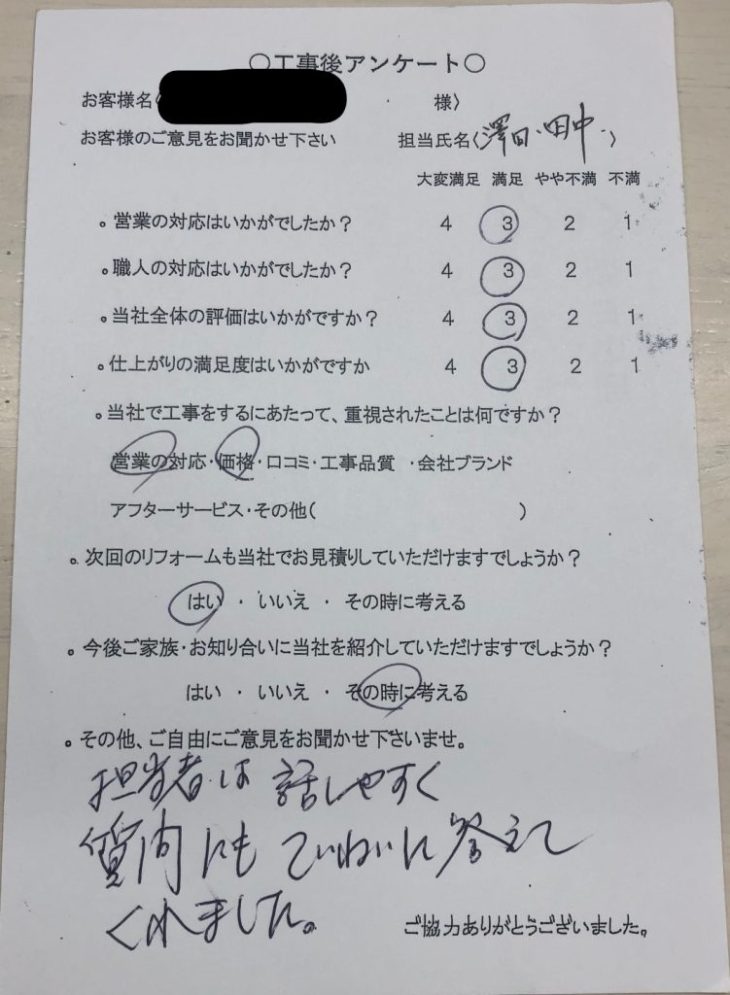 〇工事後アンケート〇
お客様名 様〉
お客様のご意見をお聞かせ下さい 担当氏名〈澤田・田中・〉
大変満足 満足 やや不満 不満
。営業の対応はいかがでしたか？ 4 3 2 1
。職人の対応はいかがでしたか？ 4 3 2 1
。当社全体の評価はいかがですか？ 4 3 2 1
。仕上がりの満足度はいかがですか 4 3 2 1
。当社で工事をするにあたって、重視されたことは何ですか？
営業の対応・価格・口コミ・工事品質 ・会社ブランド
アフターサービス・その他( )
。次回のリフォームも当社でお見積りしていただけますでしょうか？
はい ・ いいえ ・ その時に考える
。今後ご家族・お知り合いに当社を紹介していただけますでしょうか？
はい ・ いいえ ・ その時に考える
。その他、ご自由にご意見をお聞かせ下さいませ。
担当者は話しやすく
質問にもていねいに答えて
くれました。
ご協力ありがとうございました。